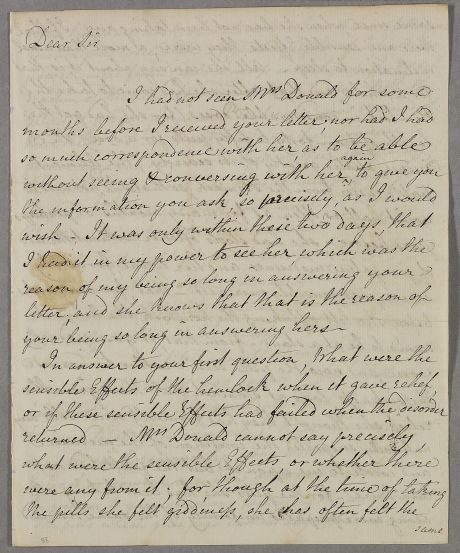 Dear Sir
I had not seen Mrs Donald for some
months before I received your letter, nor had I had
so much correspondence with her, as to be able
without seeing & conversing with her again to give you
the information you ask, so precisely, as I would
wish – It was only within these two days, that
I had it in my power to see her which was the
reason of my being so long in answering your
letter, and she knows that that is the reason of
your being so long in answering hers –
In answer to your first question, What were the
sensible Effects of the hemlock when it gave relief
or if these sensible Effects had failed when the disorder
returned — Mrs Donald cannot say precisely
what were the sensible Effects or whether there
were any from it. for though at the time of taking
the pills she felt giddiness, she has often felt the
same